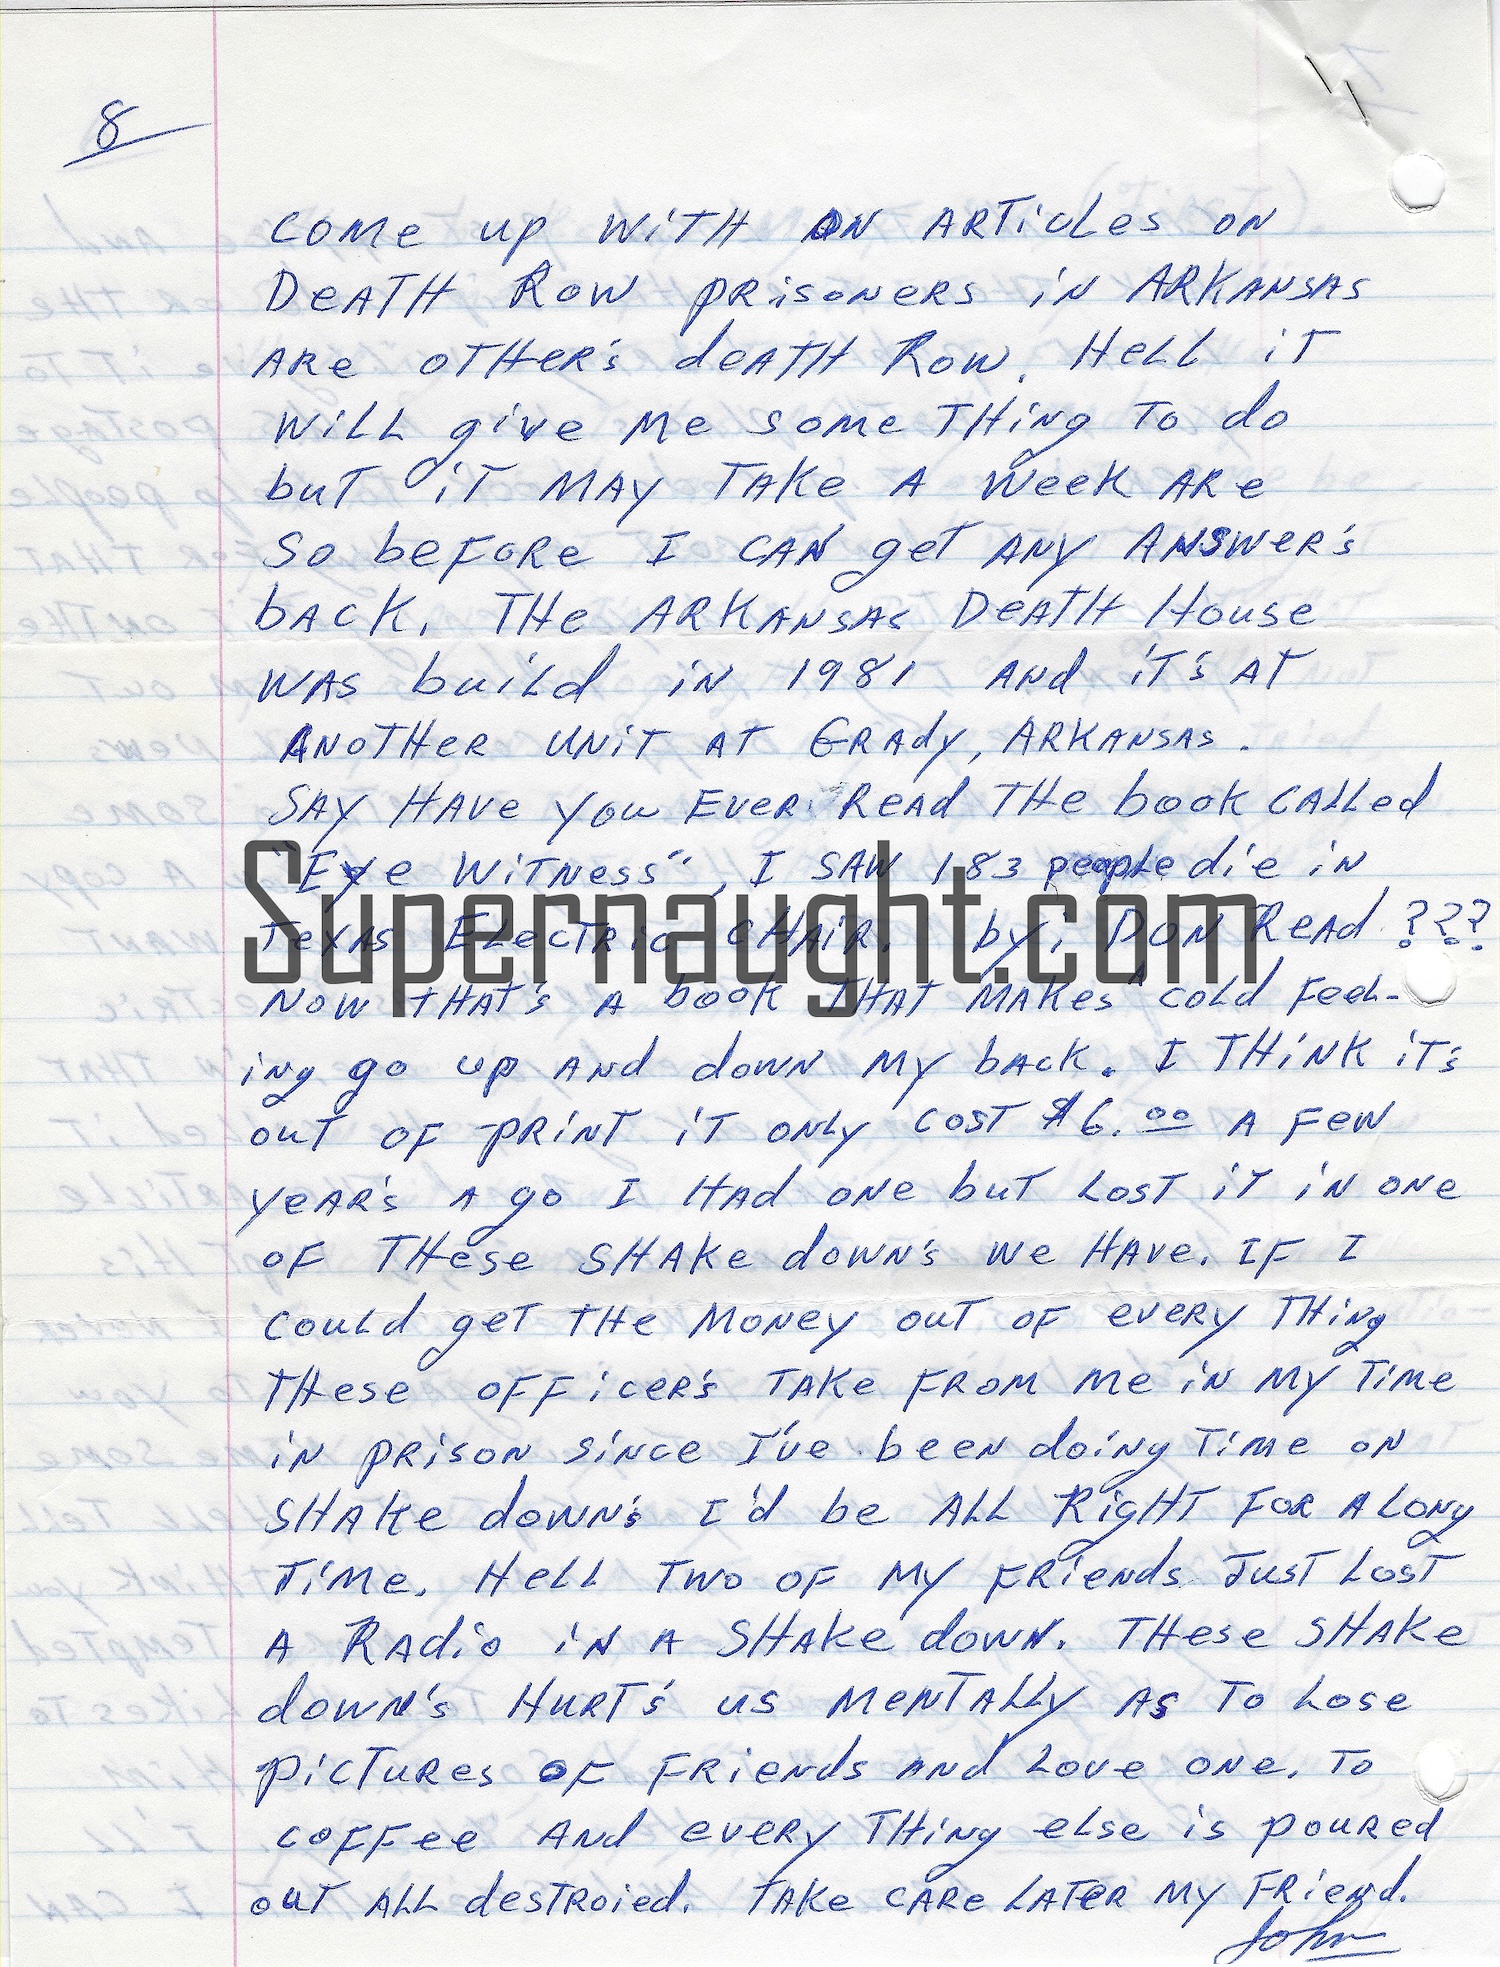 8
COME UP WITH AN ARTICLES ON
DEATH ROW PRISONERS IN ARKANSAS
ARE OTHER'S DEATH ROW. HELL IT
WILL give ME SOME THING TO do
buT iT MAY TAKE A WEEK ARE
SO beFORE I CAN geT ANY ANSWER'S
bACK. THE ARKANSAS DEATH HOUSE
WAS build iN 1981 ANd iT'S AT
ANOTHER UNIT AT GRAdy, ARKANSAS.
SAY HAVE YOU EVER READ THE book CALLED
"EYE WITNESS", I SAW 183 people die iN
TEXAS ELECTRIC CHAIR. by; DON READ ???
NOW THAT'S A book THAT MAKES COLD FEEL-
iNg go up AND dOWN MY bACK. I THINK iT'S
OUT OF PRINT iT ONLY COST $6.00 A FEW
YEAR'S A go I HAD ONE buT LOST iT iN ONE
OF THESE SHAKE dOWN'S WE HAVE. IF I
COULD geT THE MONEY OUT OF EVERY THiNg
THESE OFFICER'S TAKE FROM ME iN MY TIME
iN PRISON SINCE I'VE bEEN dOiNg TIME ON
SHAKE dOWN'S I'd bE ALL RIGHT FOR A LONg
TIME. HELL TWO OF MY FRIENDS JUST LOST
A RADIO iN A SHAKE dOWN. THESE SHAKE
dOWN'S HURT'S US MENTALLY AS TO LOSE
PICTURES OF FRIENDS AND LOVE ONE. TO
COFFEE AND EVERY THiNg ELSE iS POURED
OUT ALL dESTROIED. TAKE CARE LATER MY FRIEND.
John
Supernaught.com